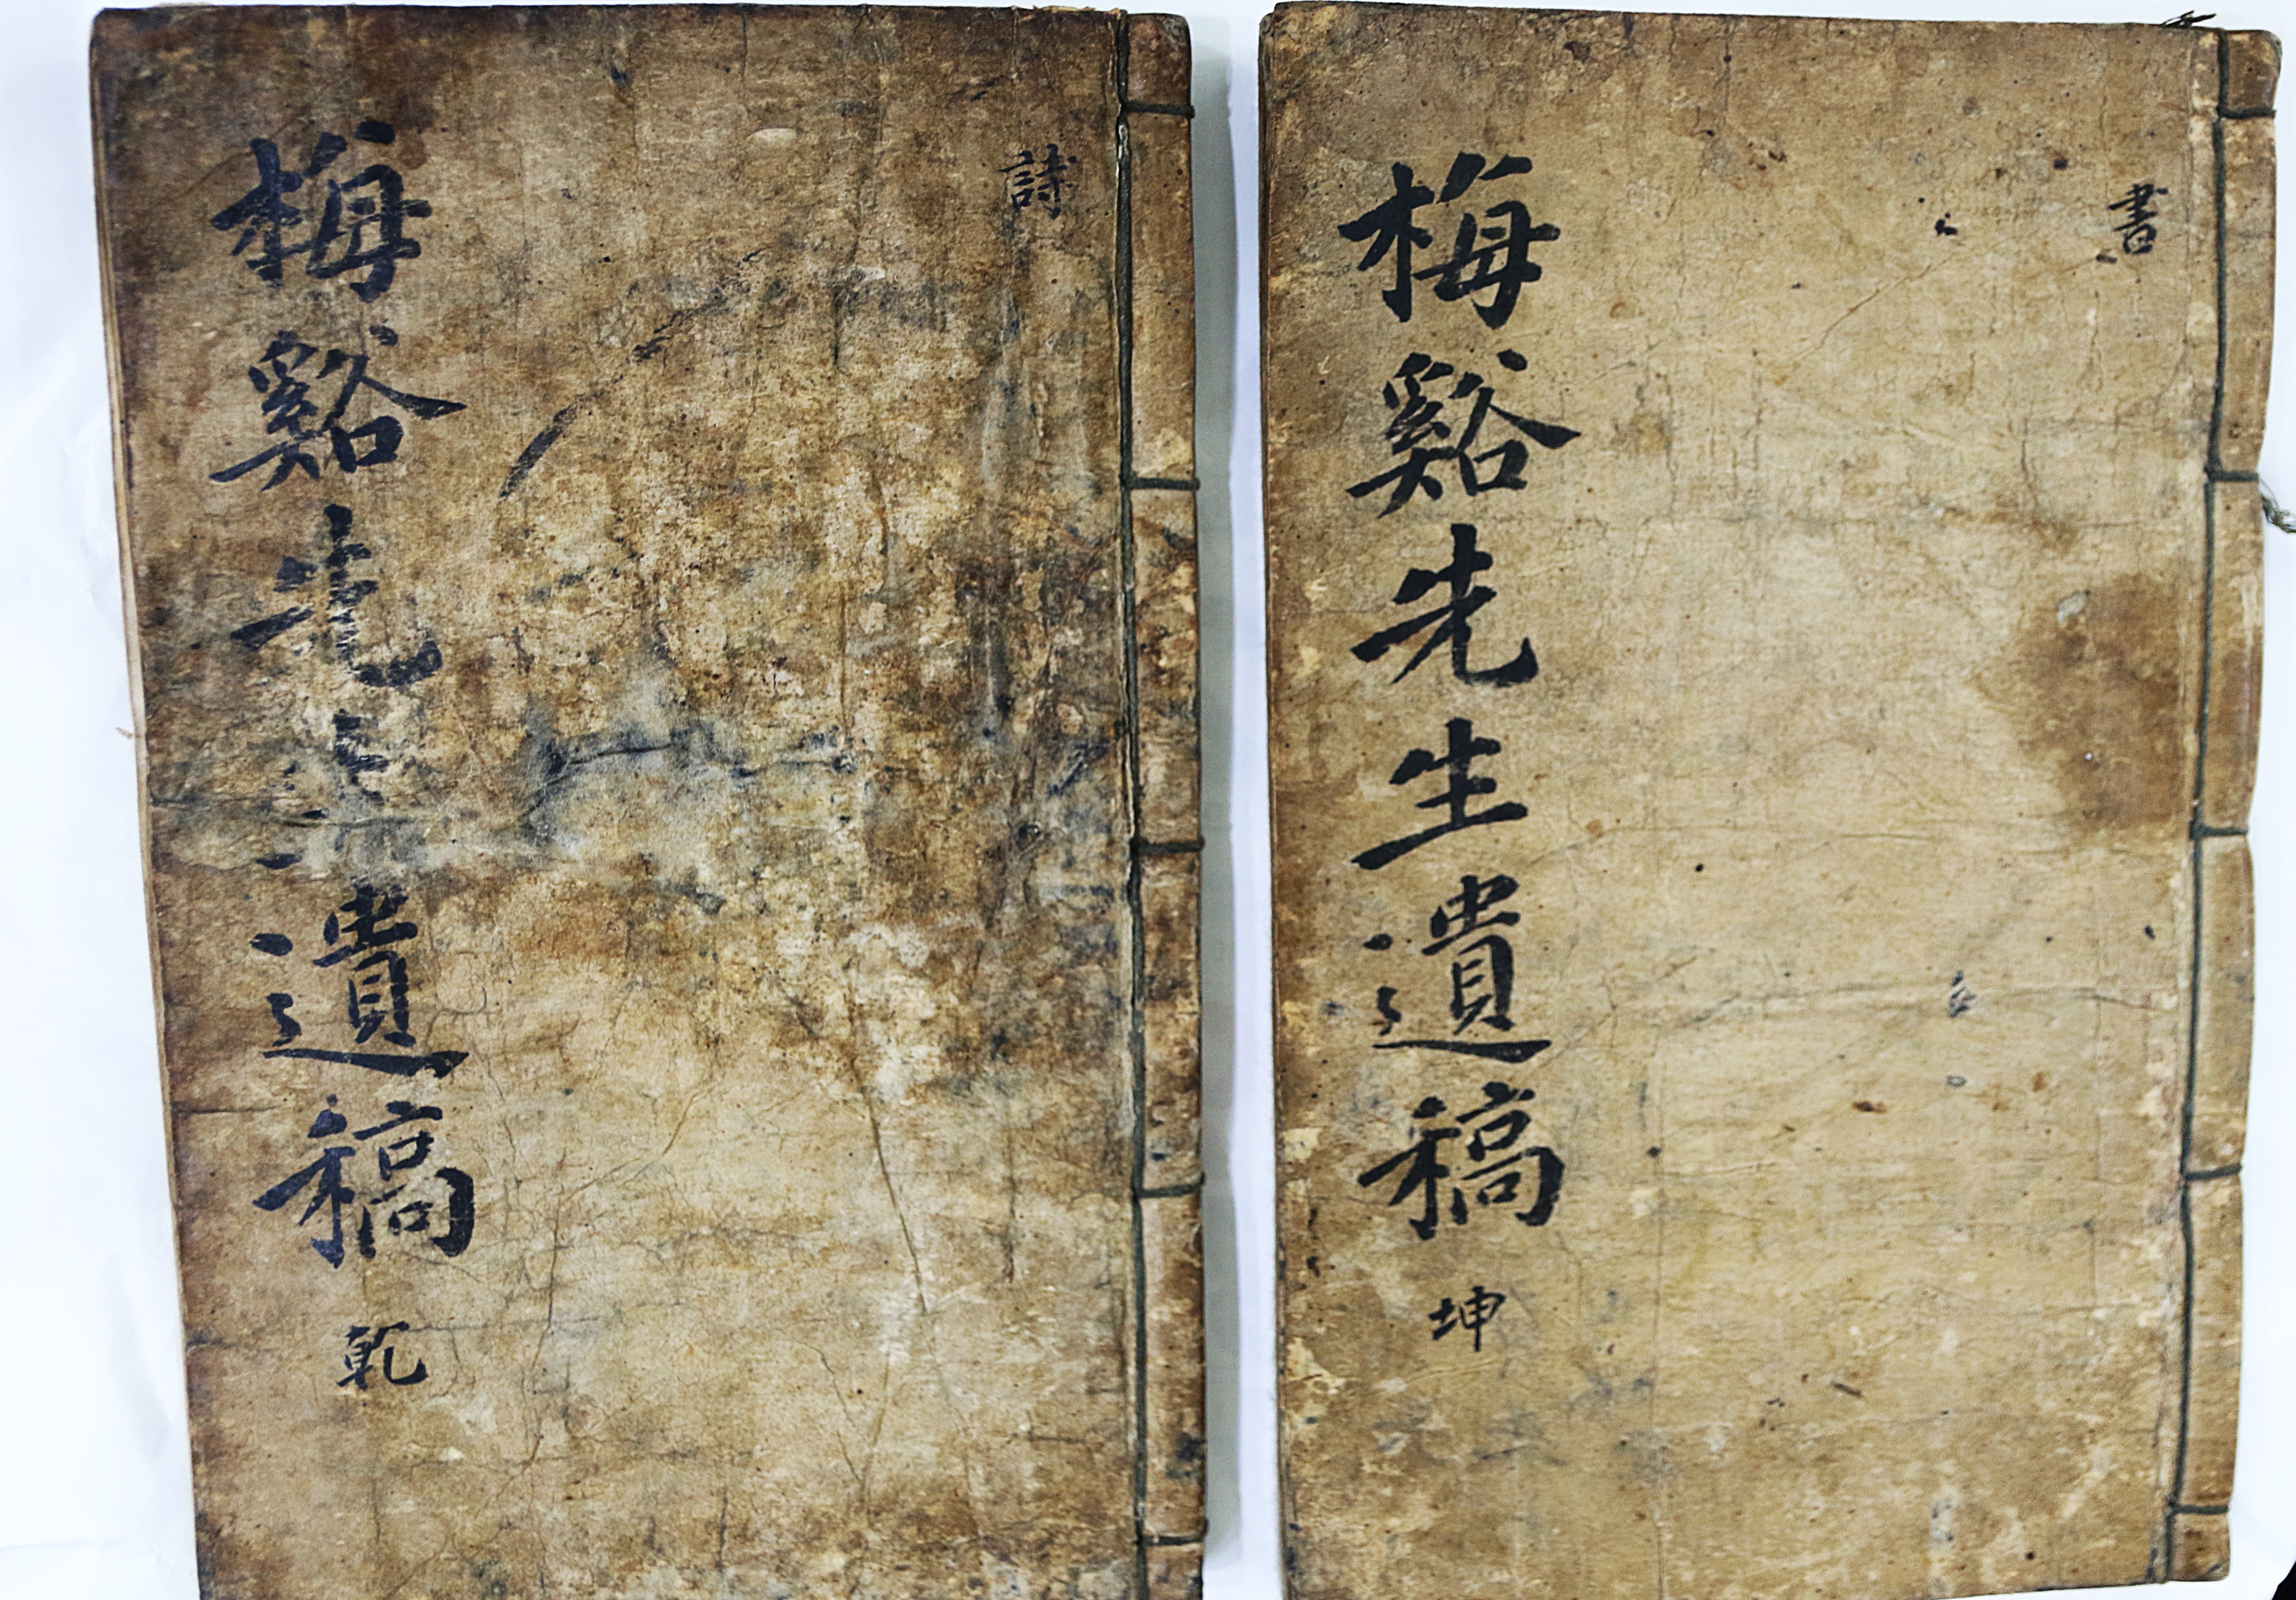 詩
梅谿先生遺稿 乾
書
梅谿先生遺稿 坤